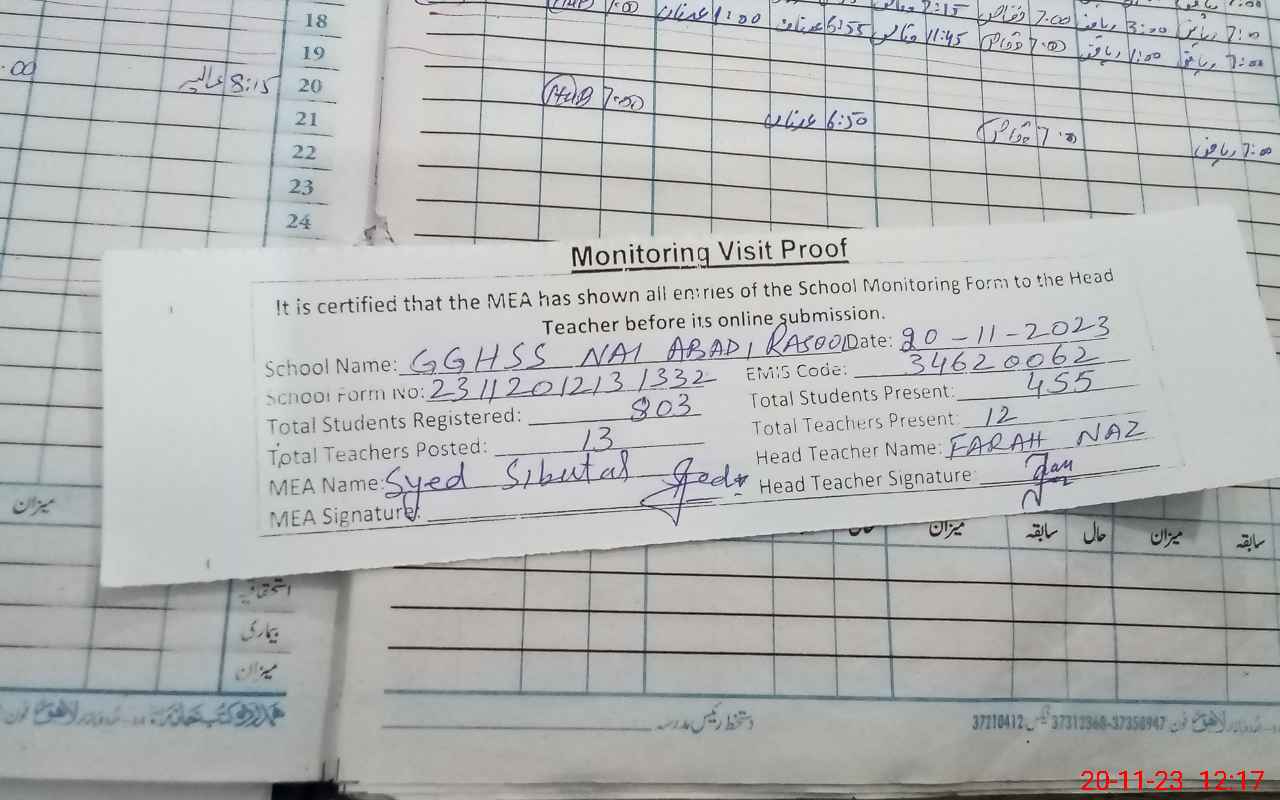 18
19
20
21
22
23
24
.00
8:15 عالیہ
7:00 1:00 عدنان 6:55 عدنان 7:15 7:00 3:00 ریاض 7:00 ریاض
11:45 7:00 1:00 ریاض 7:00 ریاض
7:00
6:50 عدنان 7:00 7:00 ریاض
Monitoring Visit Proof
It is certified that the MEA has shown all entries of the School Monitoring Form to the Head
Teacher before its online submission.
School Name: GGHSS NAI ABADI RASOOL Date: 20-11-2023
School Form No: 2311201213 1332 EMIS Code: 34620062
Total Students Registered: 803 Total Students Present: 455
Total Teachers Posted: 13 Total Teachers Present: 12
MEA Name: Syed Sibutal Head Teacher Name: FARAH NAZ
MEA Signature: Head Teacher Signature:
میزان
حال میزان سابقہ حال میزان سابقہ
استحقاقیہ
بیماری
میزان
دستخط رئیس مدرسہ
لاهور فون 37358947-37312368 فیکس 37210412
20-11-23 12:17